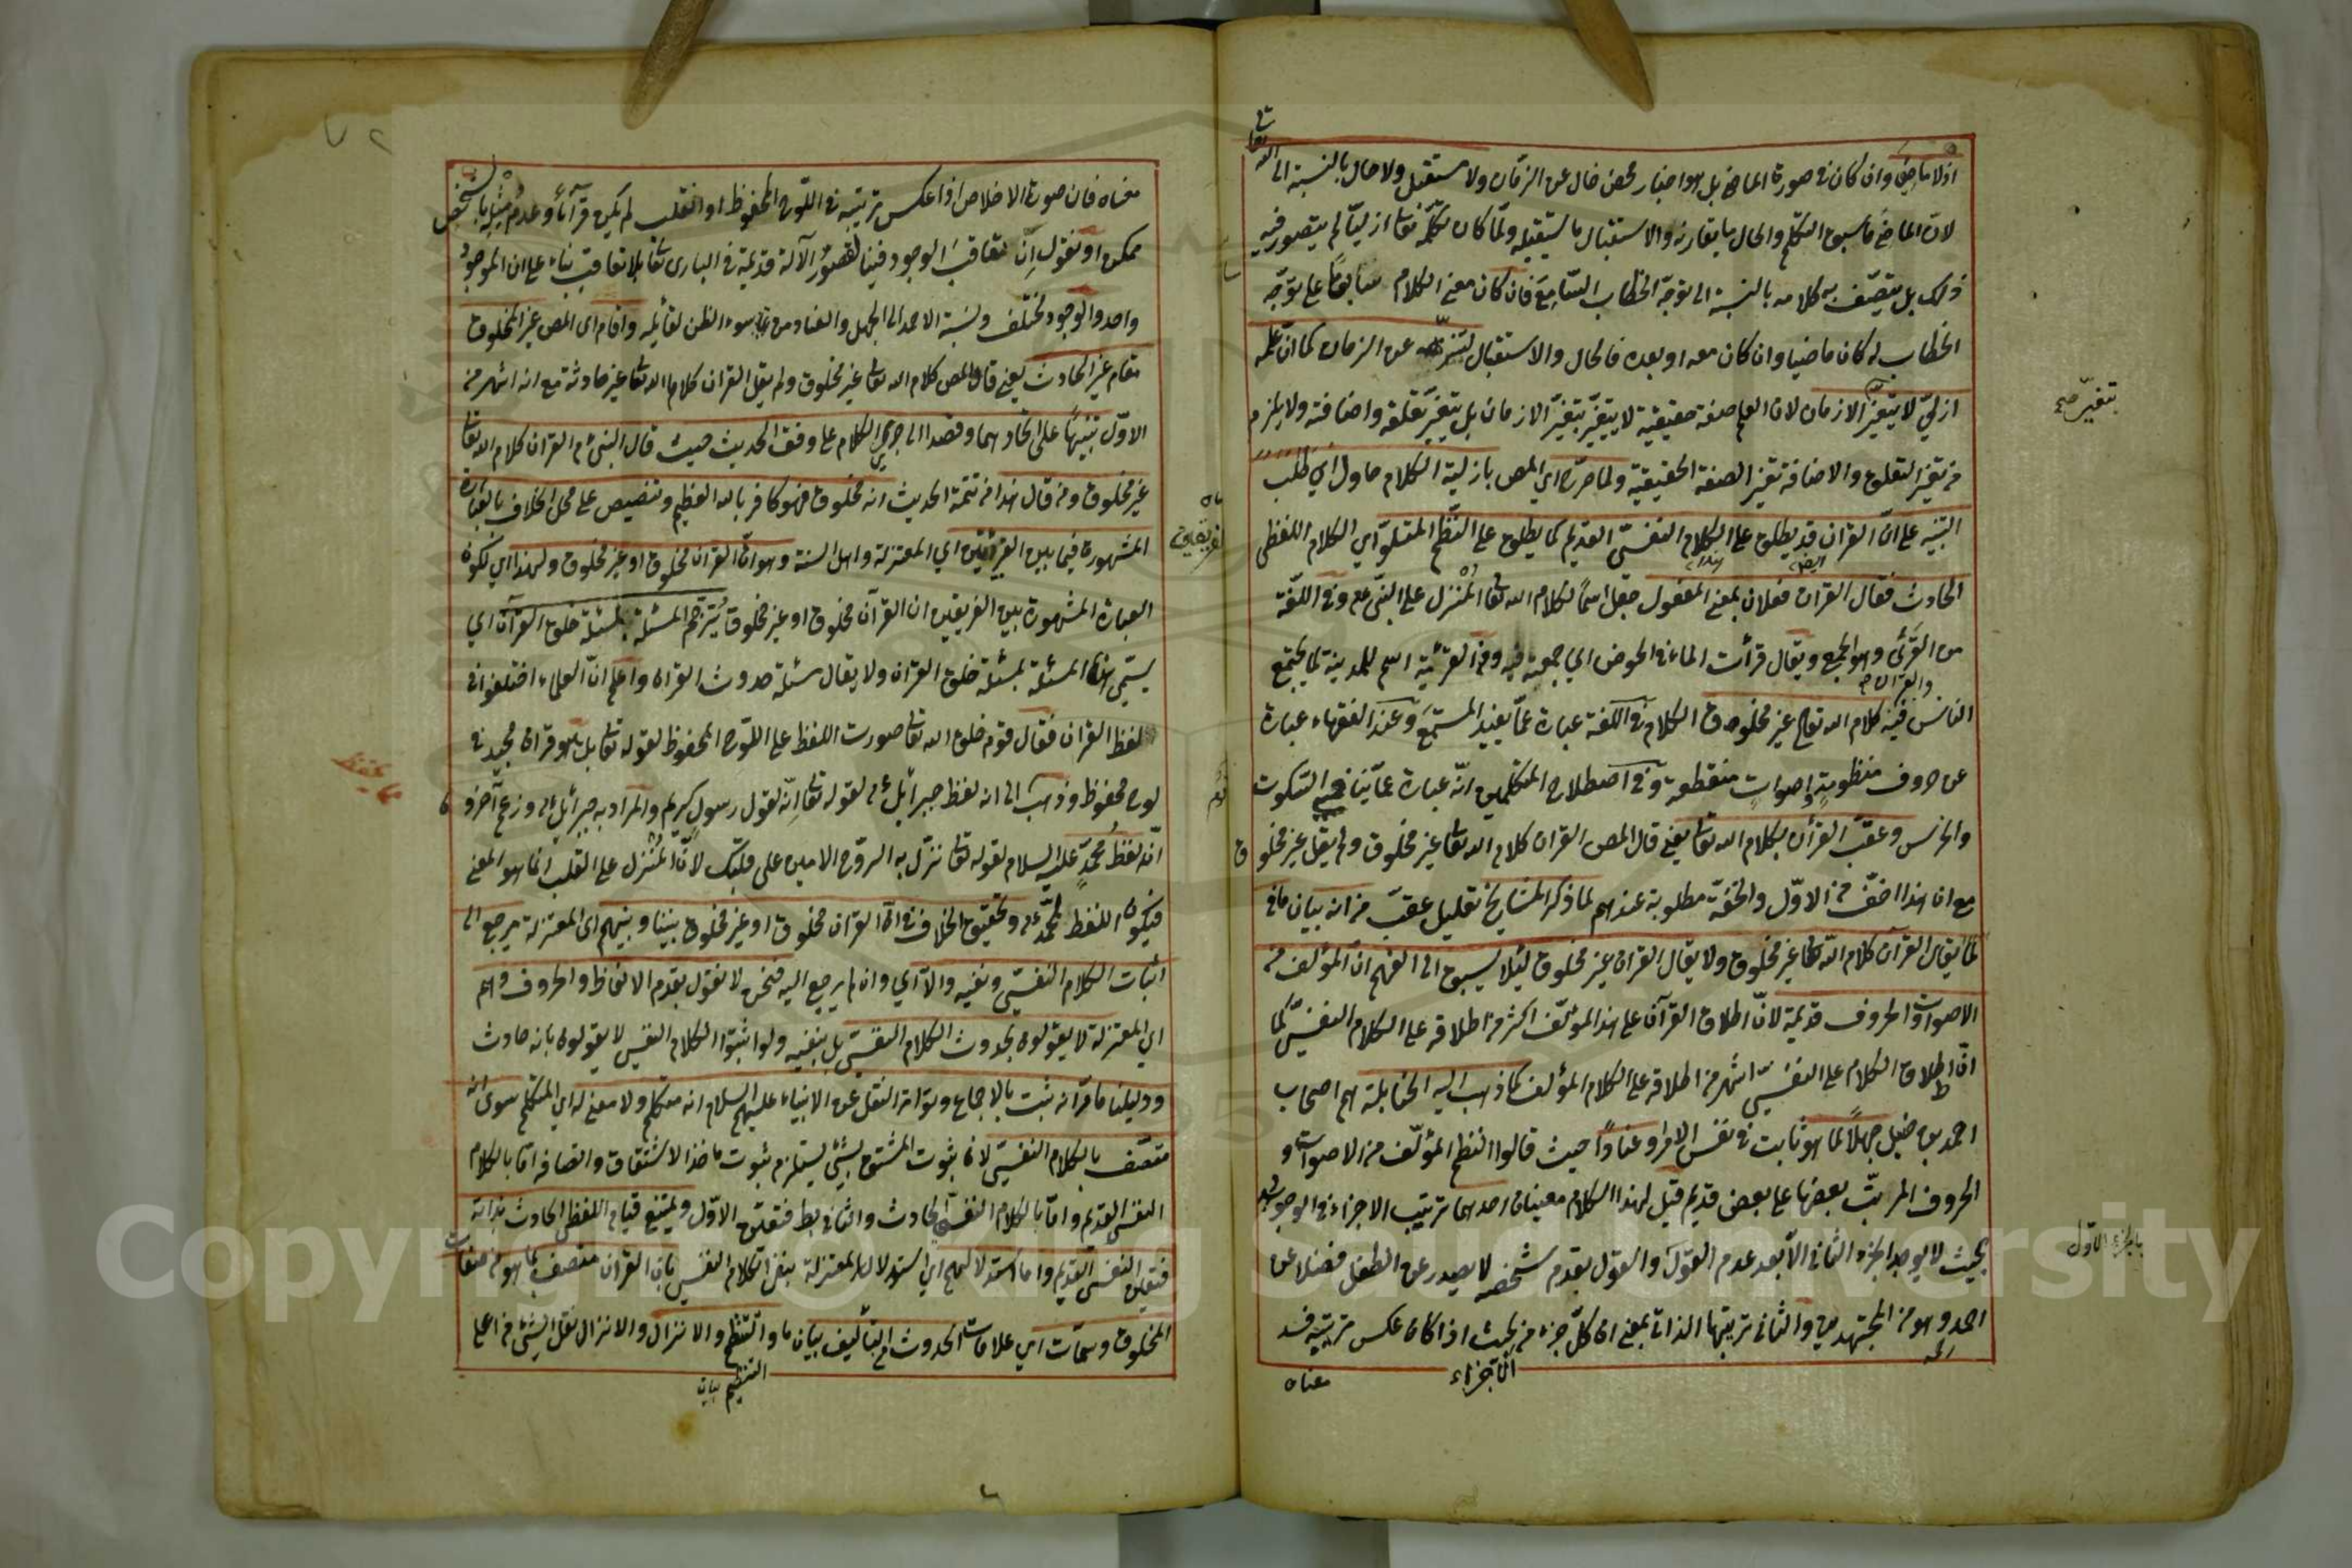 اذ لا ماضي وان كان في صورة الماضي بل هو اخبار محض خال عن الزمان ولا مستقبل ولا حال بالنسبة الى الله تعا
لان الماضي ما سبق التكلم والحال ما يقارنه والاستقبال ما يستقبله ولما كان تكلمه تعا ازليا لم يتصور فيه
ذلك بل يتصف به كلامه بالنسبة الى توجه الخطاب السامع فان كان معنى الكلام سابقا على توجه
الخطاب له كان ماضيا وان كان معه او بعده فالحال والاستقبال لتنزهه عن الزمان كما ان علمه
ازلي لا يتغير الازمان لان العلم صفة حقيقية لا يتغير بتغير الازمان بل يتغير تعلقه واضافته ولا يلزم
من تغير التعلق والاضافة تغير الصفة الحقيقية ولما صرح اي المص بازلية الكلام حاول اي طلب
التنبيه على ان القران قد يطلق على الكلام النفسي القديم كما يطلق على النظم المتلو اي الكلام اللفظي
الحادث فقال القران فعلان بمعنى المفعول جعل اسما لكلام الله تعا المنزل على النبي عم وفي اللغة
من القرئ وهو الجمع ويقال قرأت الماء في الحوض اي جمعته فيه ومنه القرية اسم للمدينة لما يجتمع
الناس فيه كلام الله تعالى غير مخلوق والكلام في اللغة عبارة عما يفيد المستمع وعند الفقهاء عبارة
عن حروف منظومة واصوات منقطعة وفي اصطلاح المتكلمين انه عبارة عما ينافي السكوت
والخرس وعقب القرأن بكلام الله تعا يعني قال المص القران كلام الله تعا غير مخلوق ولم يقل غير مخلوق
مع ان هذا اخف من الاول والخفة مطلوبة عندهم لما ذكر المشايخ تعليل عقب من انه بيان ما في
لما يقال القرآن كلام الله تعا غير مخلوق ولا يقال القران غير مخلوق لئلا يسبق الى الفهم ان المؤلف من
الاصوات والحروف قديمة لان اطلاق القرآن على هذا المؤلف اكثر من اطلاقه على الكلام النفسي كما
ان اطلاق الكلام على النفسي اشهر من اطلاقه على الكلام المؤلف كما ذهب اليه الحنابلة هم اصحاب
احمد بن حنبل جهلا لما هو ثابت في نفس الامر او عنادا حيث قالوا النظم المؤلف من الاصوات و
الحروف المرتبة بعضها على بعض قديم قيل لهذا الكلام معينان احدهما ترتيب الاجزاء في الوجود
بحيث لا يوجد الجزء الثاني الا بعد عدم القول والقول بقدم شخصه لا يصدر عن الطفل فضلا عن
احمد وهو من المجتهدين والثاني ترتيبها الذاتي بمعنى ان كل جزء من بحيث اذا كان عكس ترتيبه فسد
الاجزاء
معناه
تغير صح
والقران
بالجزء الاول
معناه فان صورة الاخلاص اذا عكس ترتيبه في اللوح المحفوظ او انقلب لم يكن قرآنا وعدم مثله بالشخص
ممكن او نقول ان تعاقب الوجود فينا لقصور الآلة قديمة في البارى تعا بلا تعاقب بناء على ان الموجود
واحد والوجود مختلف ونسبة الاحمد الى الجهل والعناد من سوء الظن لقائله واقام اى المص غير المخلوق
مقام غير الحادث يعني قال المص كلام الله تعا غير مخلوق ولم يقل القران كلام الله تعا غير حادث مع انه اشهر من
الاول تنبيها على اتحادهما وقصدا الى جري الكلام على وفق الحديث حيث قال النبي م القران كلام الله تعا
غير مخلوق ومن قال هذا من تتمة الحديث انه مخلوق فهو كافر بالله العظيم وتنصيص على محل الخلاف بالعبارة
المشهورة فيما بين الفريقين اي المعتزلة واهل السنة وهو ان القران مخلوق او غير مخلوق ولهذا اي لكون
العبارة المشهورة بين الفريقين ان القرآن مخلوق او غير مخلوق يترجم المسئلة بمسئلة خلق القرآن اي
يسمى هذه المسئلة بمسئلة خلق القران ولا يقال مسئلة حدوث القران واعلم ان العلماء اختلفوا في
لفظ القران فقال قوم خلق الله تعا صورت اللفظ على اللوح المحفوظ لقوله تعا بل هو قران مجيد في
لوح محفوظ وذهب الى انه لفظ جبرائيل ع لقوله تعا انه لقول رسول كريم والمراد به جبرائيل ع وزعم آخرون
انه لفظ محمد عليه السلام لقوله تعا نزل به الروح الامين على قلبك لان المنزل على القلب انما هو المعنى
فيكون اللفظ لمحمد ع وتحقيق الخلاف في ان القران مخلوق او غير مخلوق بيننا وبينهم اى المعتزلة يرجع الى
اثبات الكلام النفسي ونفيه والا اي وان لم يرجع اليه فنحن لا نقول بقدم الالفاظ والحروف وهم
اي المعتزلة لا يقولون بحدوث الكلام النفسي بل ينفيه ولو اثبتوا الكلام النفس لا يقولون بانه حادث
ودليلنا ما مر انه ثبت بالاجماع وتواتر النقل عن الانبياء عليهم السلام انه متكلم ولا معنى له اي المتكلم سوى انه
متصف بالكلام النفسي لان ثبوت المشتق لشئ يستلزم ثبوت ماخذ الاشتقاق واتصافه اما بالكلام
النفسي القديم واما بالكلام النفسي الحادث والثاني بط فتعين الاول ويمتنع قيام اللفظي الحادث بذاته
فتعين النفسي القديم واما استدلالهم اي استدلال المعتزلة بنفي الكلام النفس بان القران متصف بما هو من صفات
المخلوق وسمات اي علامات الحدوث من التأليف بيان ما والتنظيم والانزال والانزال نقل الشئ من اعلى
التنظيم بيان
الفريقين